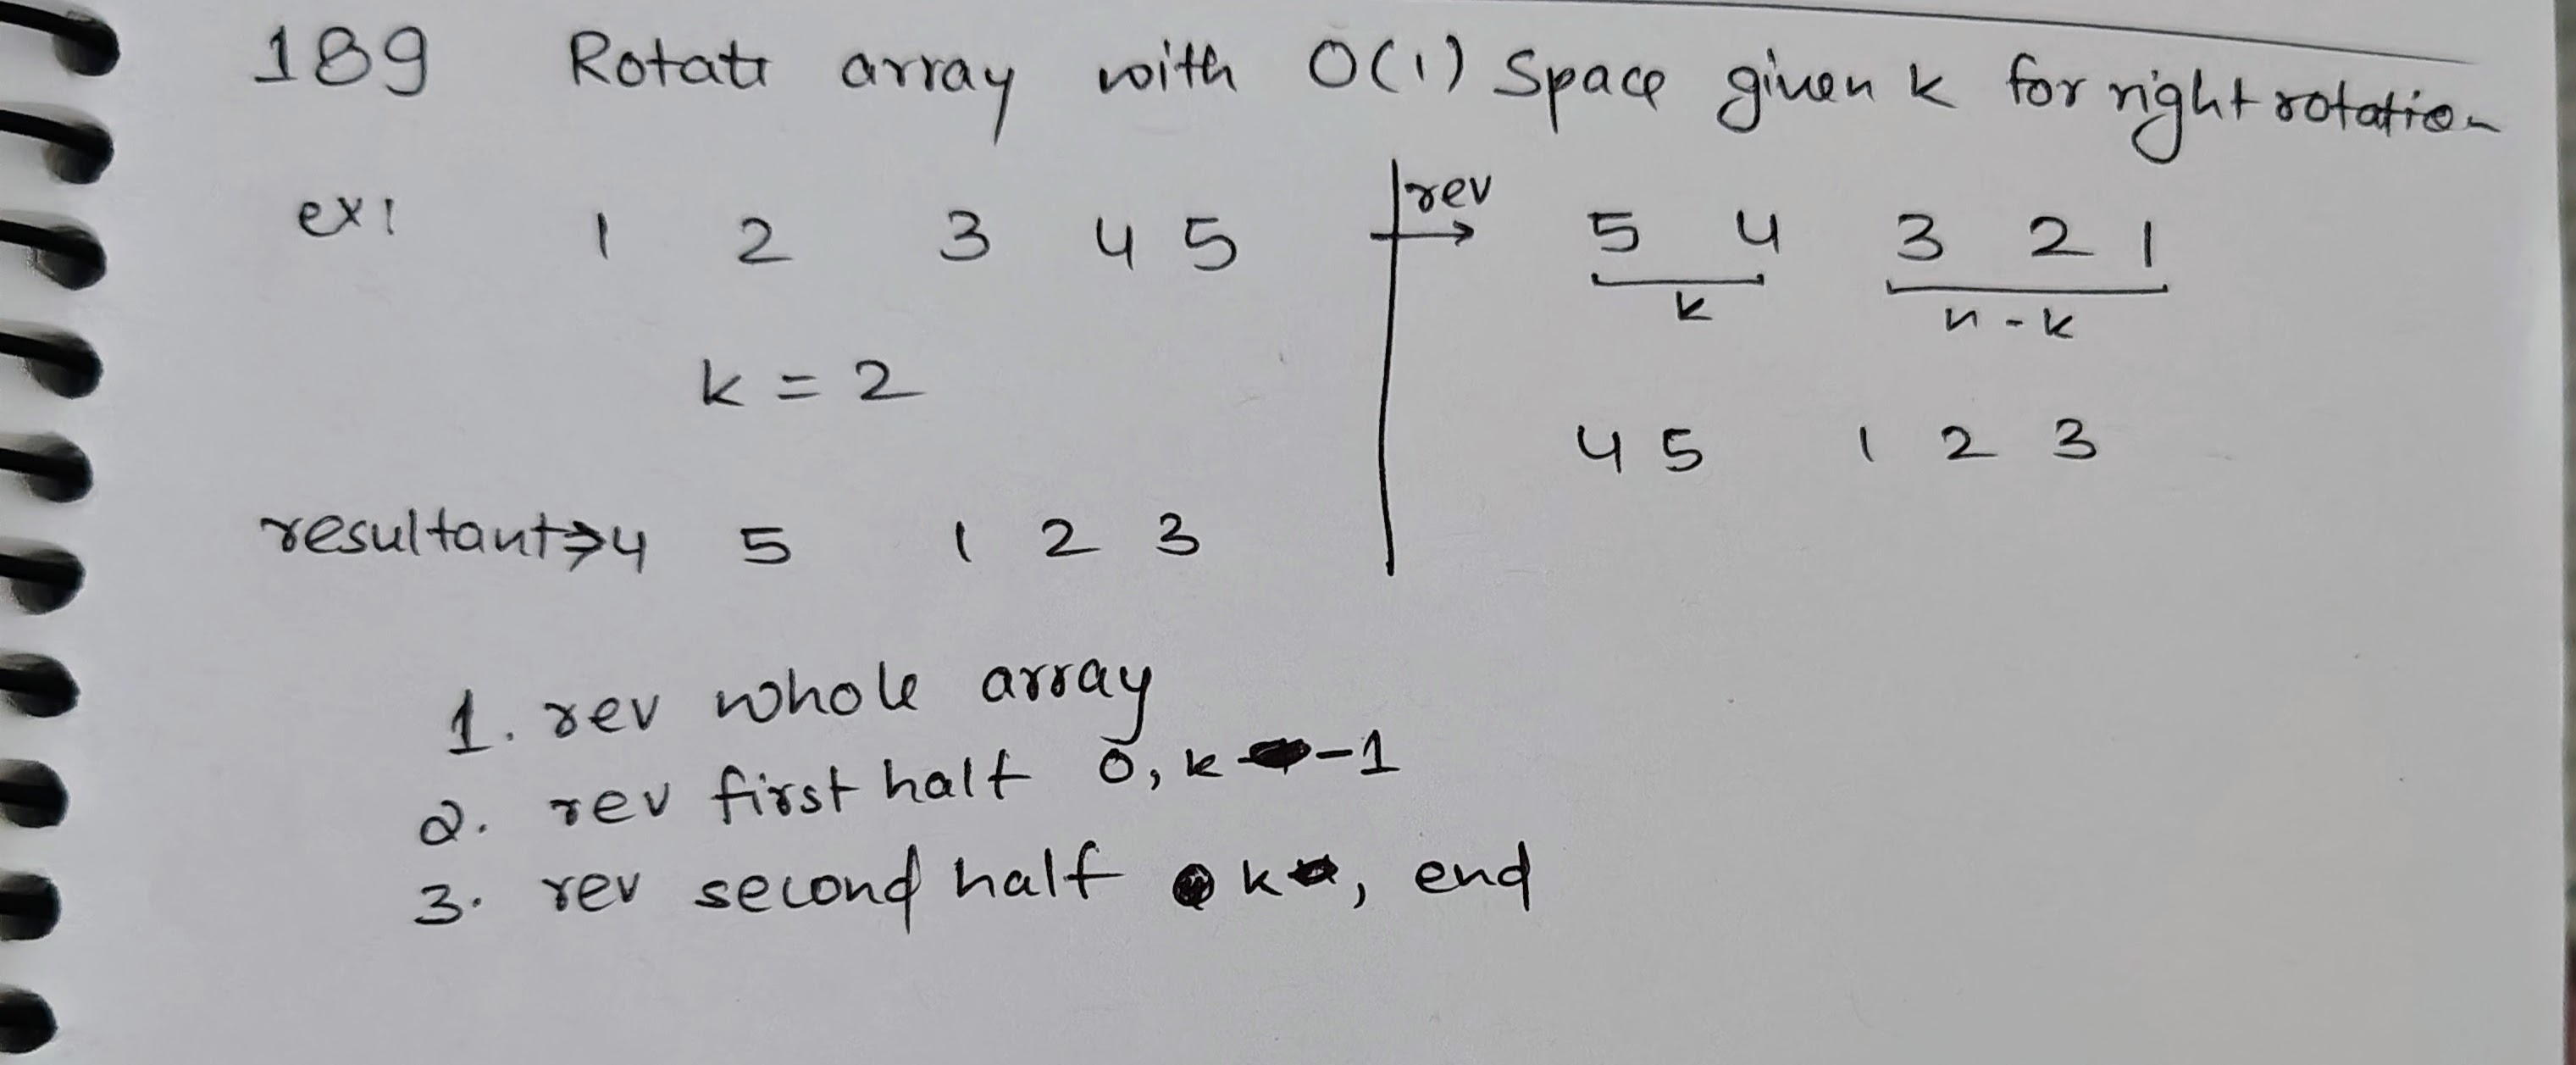 189 Rotate array with O(1) Space given k for right rotation
ex: 1 2 3 4 5
k = 2
resultant → 4 5 1 2 3
rev → 5 4 3 2 1
k n-k
4 5 1 2 3
1. rev whole array
2. rev first half 0, k -1
3. rev second half k, end